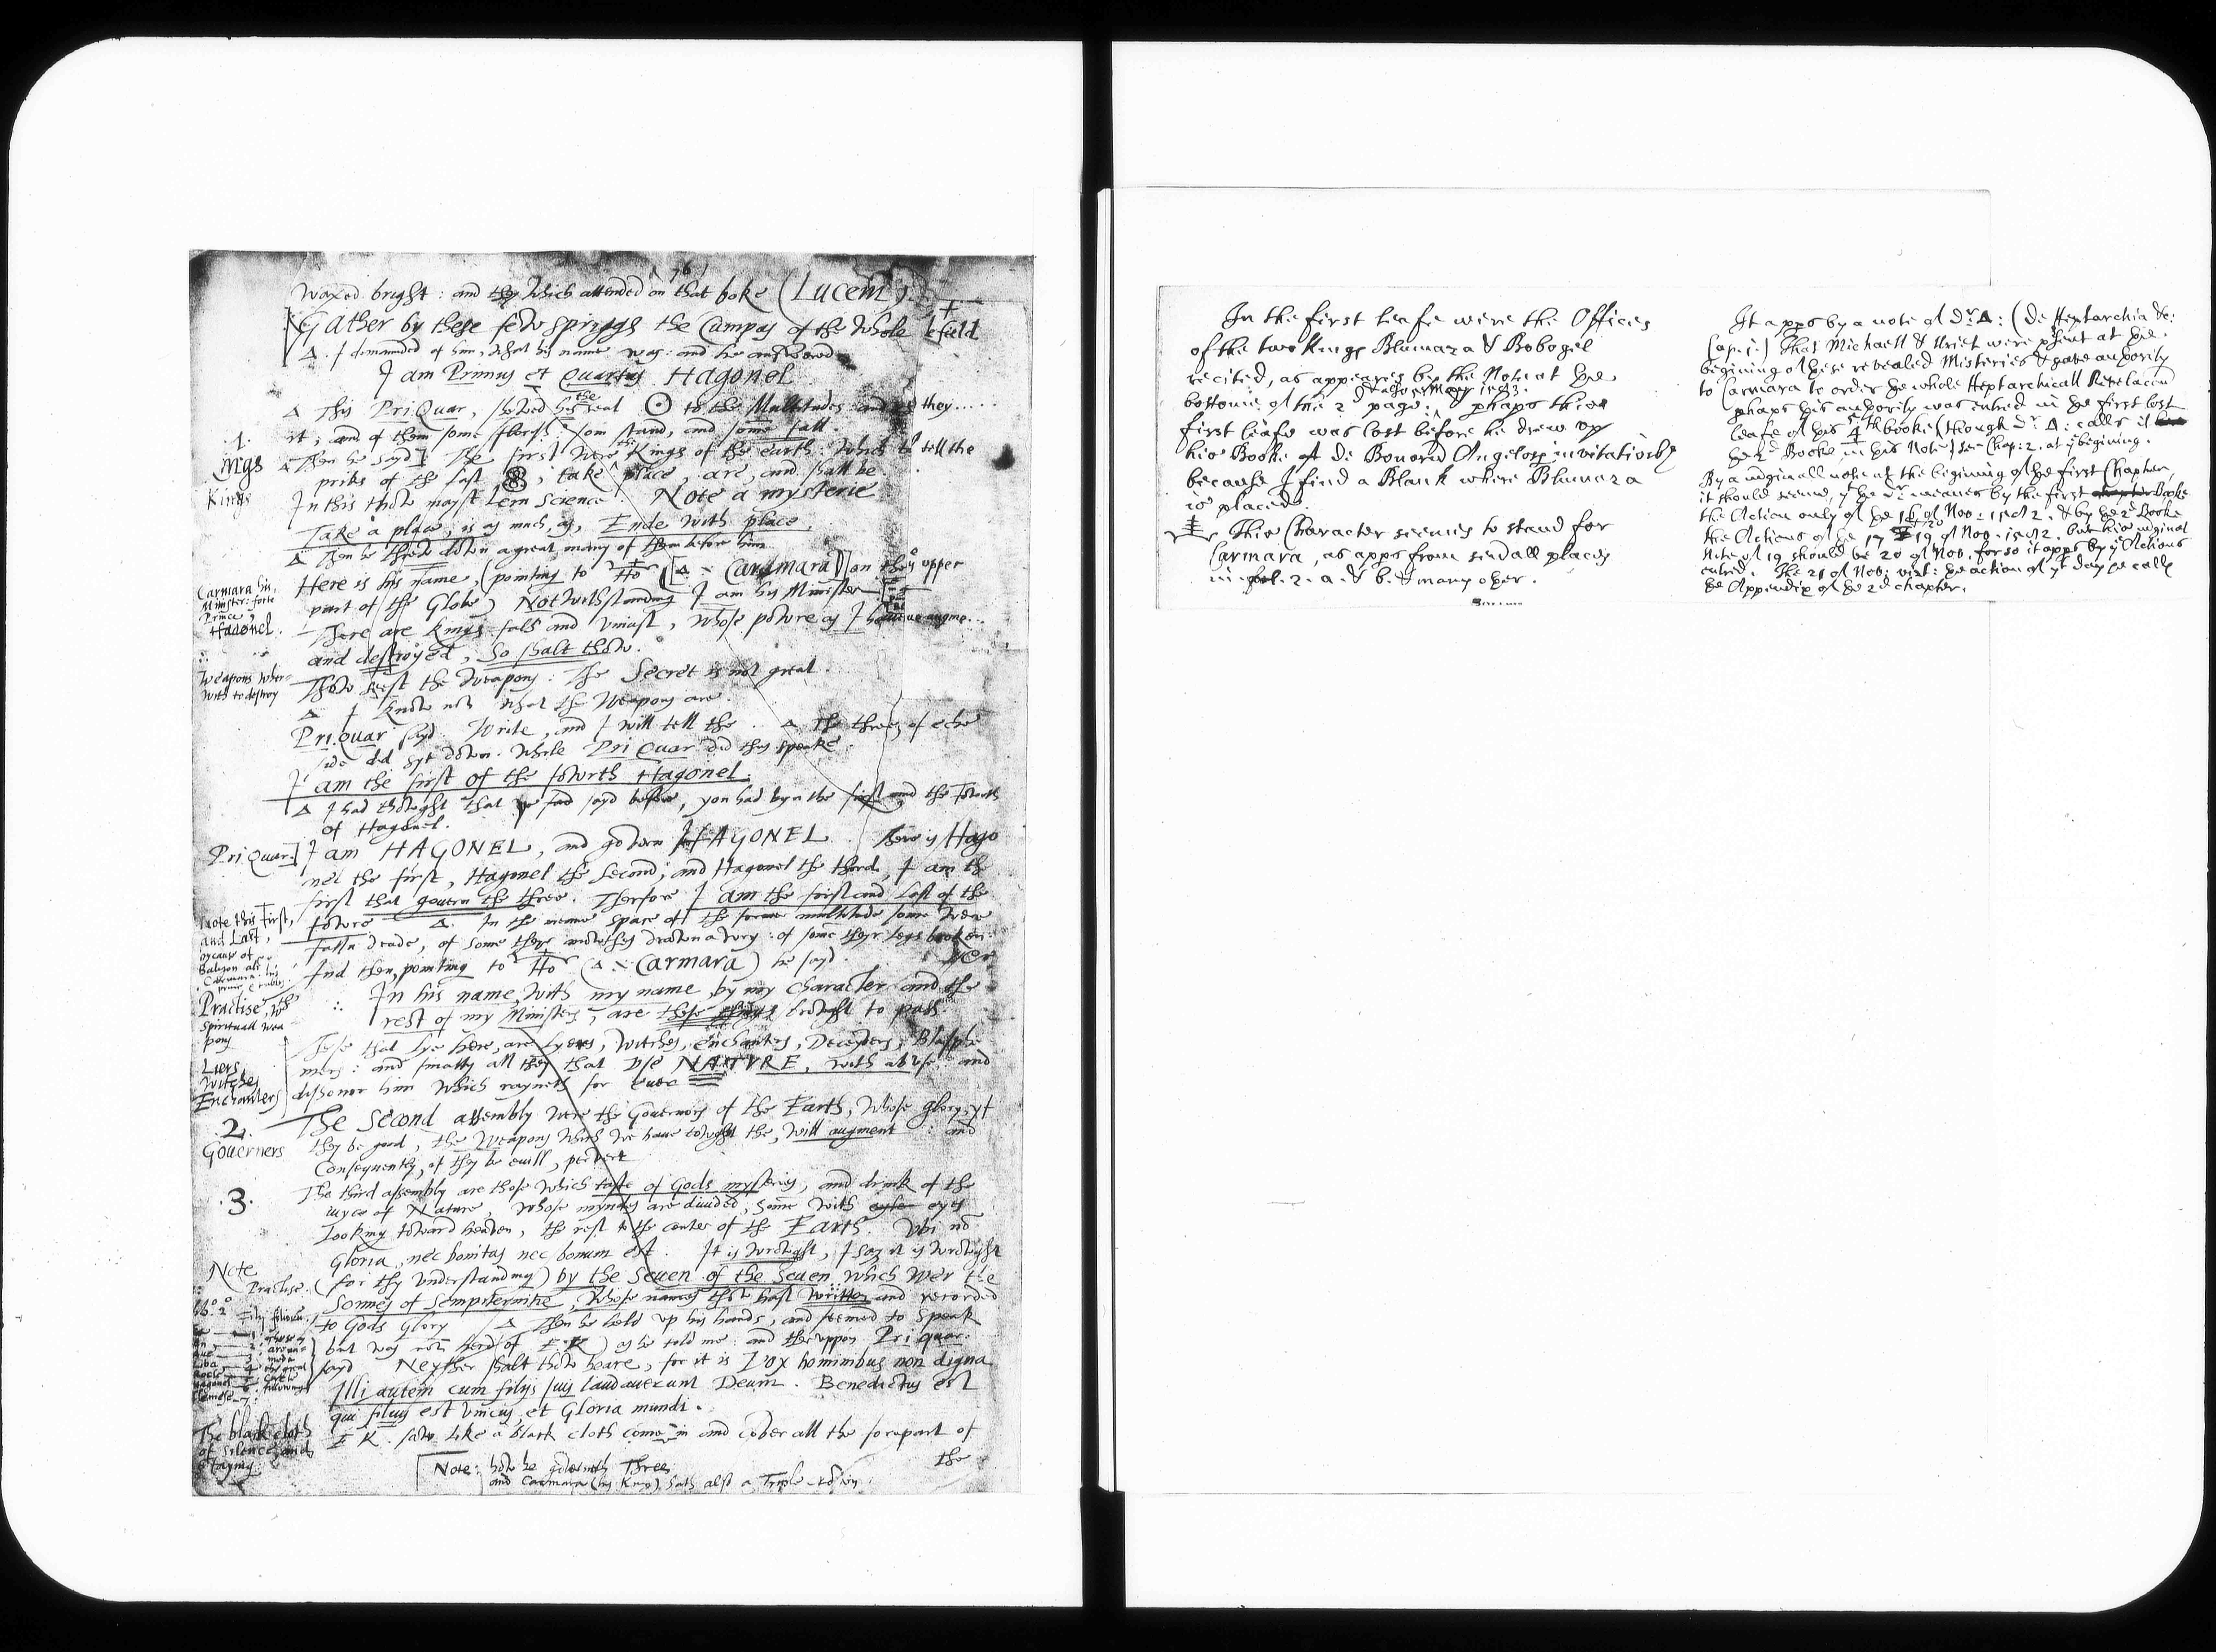 waxed bright: and they which attended on that boke (Lucem).
Gather by these few springs the Cumpas of the whole field
Δ. I demaunded of him, what his name was: and he answered
I am Primus et Quartus Hagonel.
Δ This PriQuar, shewed his seal ☉ to the Multitudes and they.....
it, and of them some florish, som stand, and some fall.
.1.
ngs
Kings
Then he sayd] The first were Kings of the earth: which
take place, are, and shall be
In this thow mayst Lern Science. Note a mysterie
Take a place, is as much, as, Ende with place.
Δ Then he threw down a great many of them before him
Here is his name, (pointing to Ho [Δ Carmara] on the upper
part of the Globe) Notwithstanding I am his Minister
Carmara his
Minister: forte
Prince,
Hagonel.
There are Kings fals and uniust, whose powre as I have
and destroyed, So shalt thow.
Weapons wher-
with to destroy
Thow seest the weapons: The Secret is not great.
Δ I know not what the Weapons are.
Pri.Quar sayd. Write, and I will tell the. Δ The three, of eche
side did syt down. while Pri Quar did thus speake.
I am the first of the fowrth Hagonel.
Δ I had thowght that ye had sayd before, you had byn the first and the Fowrth
of Hagonel.
Pri.Quar.] I am HAGONEL, and govern HAGONEL. There is Hago
nel the first, Hagonel the Second, and Hagonel the third, I am the
first that govern the three. Therfore I am the first and Last of the
fowre. Δ. In the meane space of the former multitude some were
falln deade, of some theyr mowthes drawn awry: of some theyr legs broken:
Note this First,
and Last,
And then, pointing to Ho (Δ Carmara) he sayd.
In his name, with my name, by my character and the
rest of my Ministers, are these things browght to pass.
Practise, with
Spirituall wea
pons
These that lye here, are Lyers, Witches, Enchanters, Deceyvers, Blasphe
mers: and finally all they that use NATVRE, with abuse: and
dishonor him which rayneth for ever
Liers
Witches
Enchanters
.2.
Governers
The Second assembly were the Governors of the Earth, whose glory yf
they be good, the Weapons which we have towght the, will augment: and
Consequently, if they be euill, pervert
.3.
The third assembly are those which taste of Gods mysteries, and drink of the
iuyce of Nature, whose myndes are divided, some with eyes
Looking toward heaven, the rest to the center of the Earth. Vbi no
Gloria, nec bonitas nec bonum est. It is wrowght, I say it is wrowght
(for thy understanding) by the Seuen of the Seuen which wer the
Sonnes of Sempiternitie, whose names thow hast written and recorded
to Gods Glory. Δ Then he held up his hands, and seemed to speak
but was not herd of E.K) as he told me: and theruppon Pri quar.
Note
Practise.
sayd Neyther shalt thow heare, for it is Vox hominibus non digna
Illi autem cum filijs suis laudaverunt Deum. Benedictus est
qui filius est unicus, et Gloria mundi.
The black cloth
of silence and
staying.
E K. saw like a black cloth come in and cover all the forepart of
the
Note: how he governeth Three
and Carmara (his King) hath also a Triple crown
In the first leafe were the Offices
of the two Kings Blumaza & Bobogel
recited, as appeares by the Note at the
bottome of the 2 page. phaps this
first leafe was lost before he drew up
his Booke of de Bonorum Angelorum invitationibus
because I find a Blank where Blumaza
is placed.
This Character seemes to stand for
Carmara, as apps from seuerall places
in fol. 2. a. & b. & many other.
It apps by a note of Dr. Δ: (De Heptarchia &c:
Cap: 1.) That Michaell & Uriel were psent at the
begining of these revealed Misteries & gave authority
to Carmara to order the whole Heptarchicall Revelacon
phaps this authority was entred in the first lost
leafe of his 4th booke (though Dr. Δ: calls it
the 2d Booke in his Note) see Chap: 2. at ye begining.
By a marginall note at the begining of the first Chapter,
it should seeme, yt the Dr. meanes by the first Booke
the Action only of the 16 of Nov: 1582. & by the 2d Booke
the Actions of the 17 19 of Nov. 1582. but this marginal
Note of 19 should be 20 of Nov. for so it apps by ye Actions
entred. The 21 of Nov: vizt: the action of yt day he calls
the Appendix of the 2d chapter.